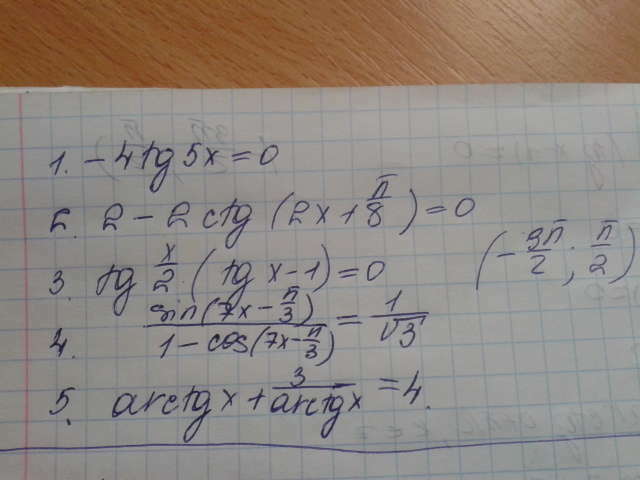 1. -4tg5x=0
2. 2-2ctg(2x+π/8)=0
3. tg x/2 (tg x-1)=0 (-3π/2; π/2)
4. sin(7x-π/3)/1-cos(7x-π/3) = 1/√3
5. arctgx+3/arctgx=4.